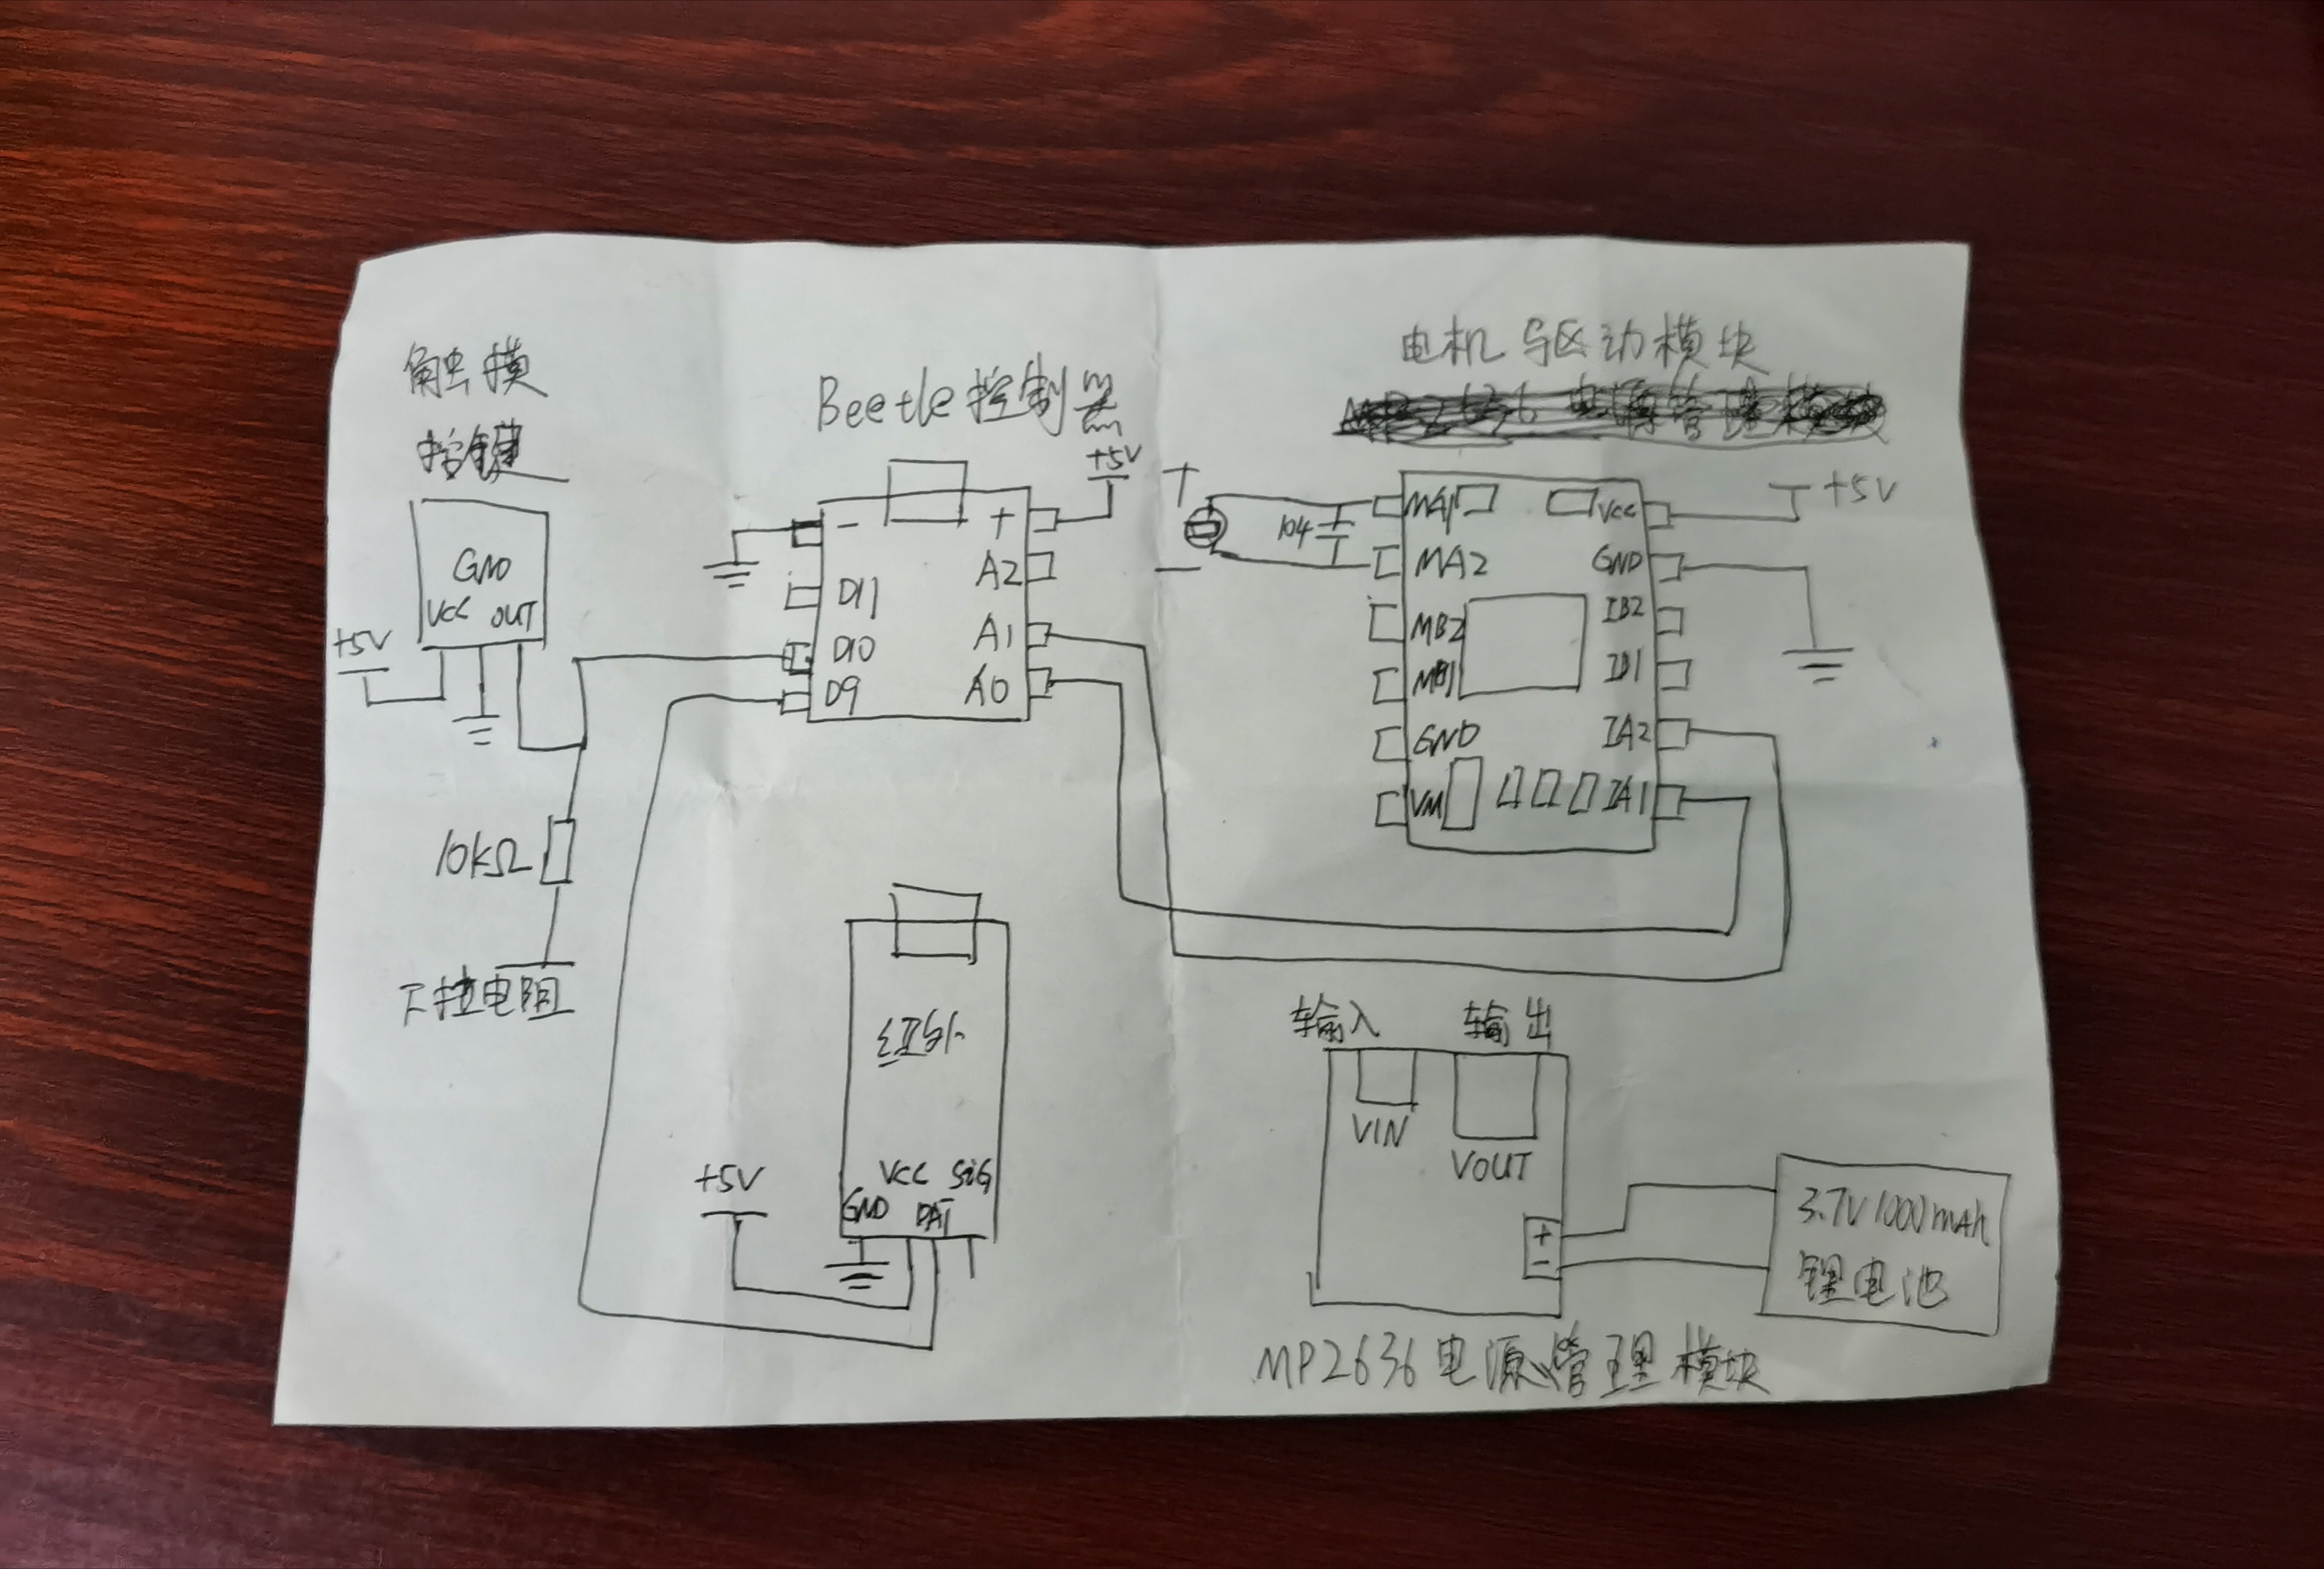 触摸
按键
GND
VCC OUT
+5V
10kΩ
下拉电阻
Beetle控制器
+5V
- +
D11 A2
D10 A1
D9 A0
红外
VCC SiG
GND DAT
+5V
电机驱动模块
MP2636 电源管理模块
+
-
104
MA1 VCC
MA2 GND
MB2 IB2
MB1 IB1
GND IA2
VM IA1
+5V
输入 输出
VIN
VOUT
+
-
3.7V 1000mAh
锂电池
MP2636电源管理模块